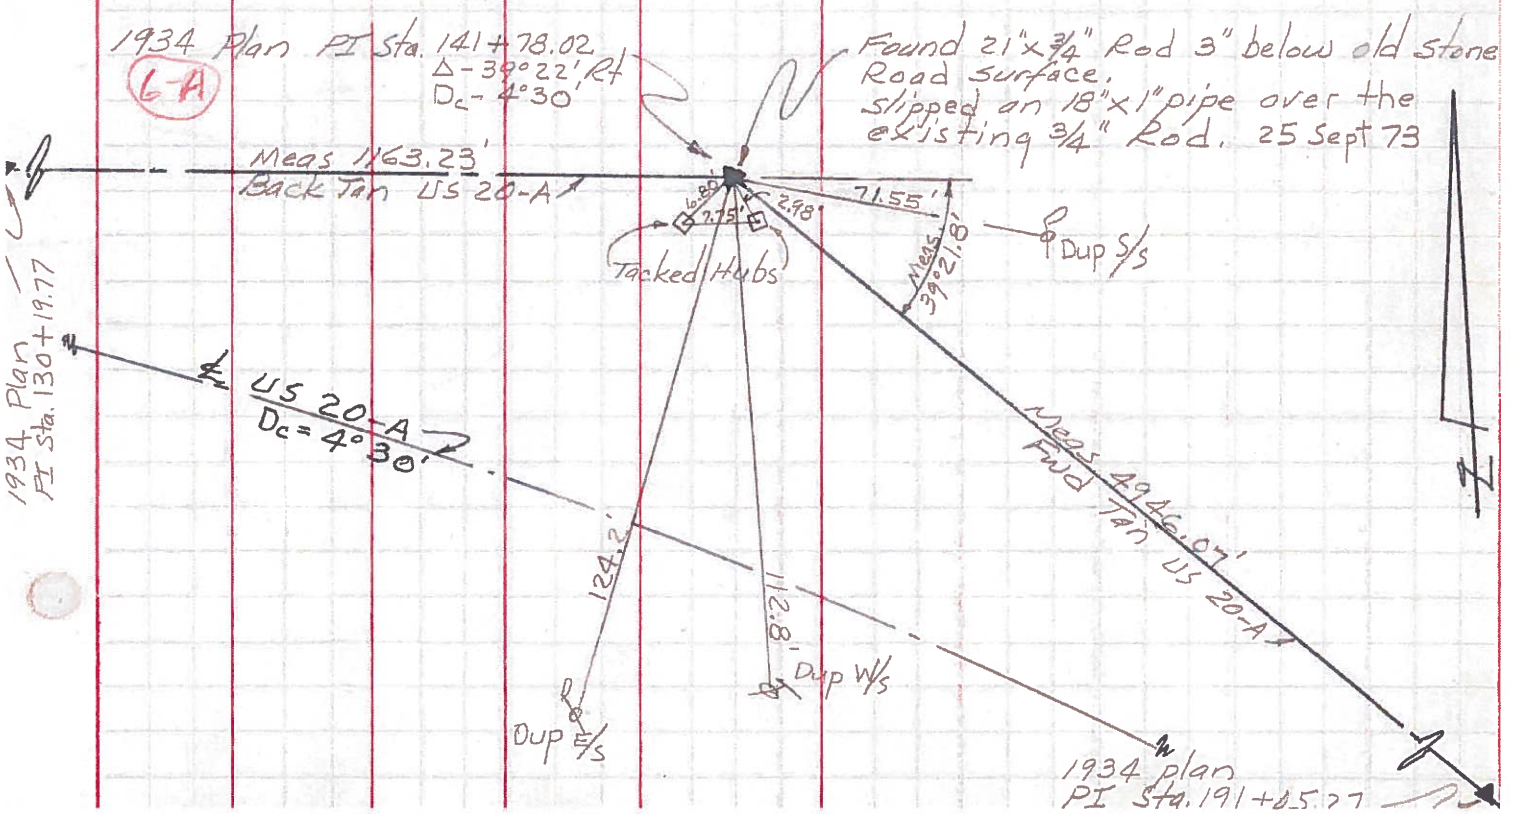 1934 Plan PI Sta. 141+78.02
Δ-39°22' Rt
Dc- 4°30'
6-A
Found 21"x 3/4" Rod 3" below old stone
Road surface.
Slipped an 18"x1" pipe over the
existing 3/4" Rod. 25 Sept 73
Meas 1163.23'
Back Tan US 20-A
6.80'
7.75'
2.98'
71.55'
Tacked Hubs
Meas.
39°21.8'
Dup S/s
1934 Plan
PI Sta. 130+19.77
℄ US 20-A
Dc = 4° 30'
Meas 4946.07'
Fwd Tan US 20-A
124.2'
112.8'
Dup W/s
Dup E/s
N
1934 plan
PI Sta. 191+